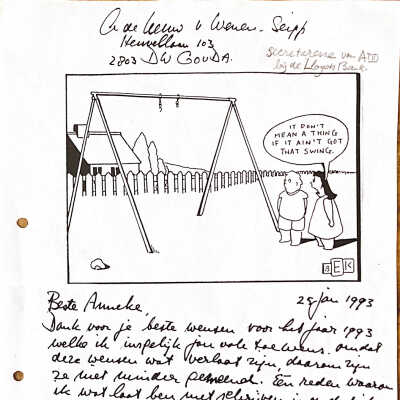 de Leeuw v Wenen - Seijp
Heuvellaan 103
2803 DW GOUDA.
secretaresse van ADD
bij de Lloyds Bank
IT DON'T
MEAN A THING
IF IT AIN'T GOT
THAT SWING.
BEK
Beste Anneke,
29 jan 1993
Dank voor je beste wensen voor het jaar 1993
welke ik jou ook toewens. omdat
deze wensen wat verlaat zijn, daarom zijn
ze niet minder gemeend. Een reden waarom
ik wat laat ben met schrijven is